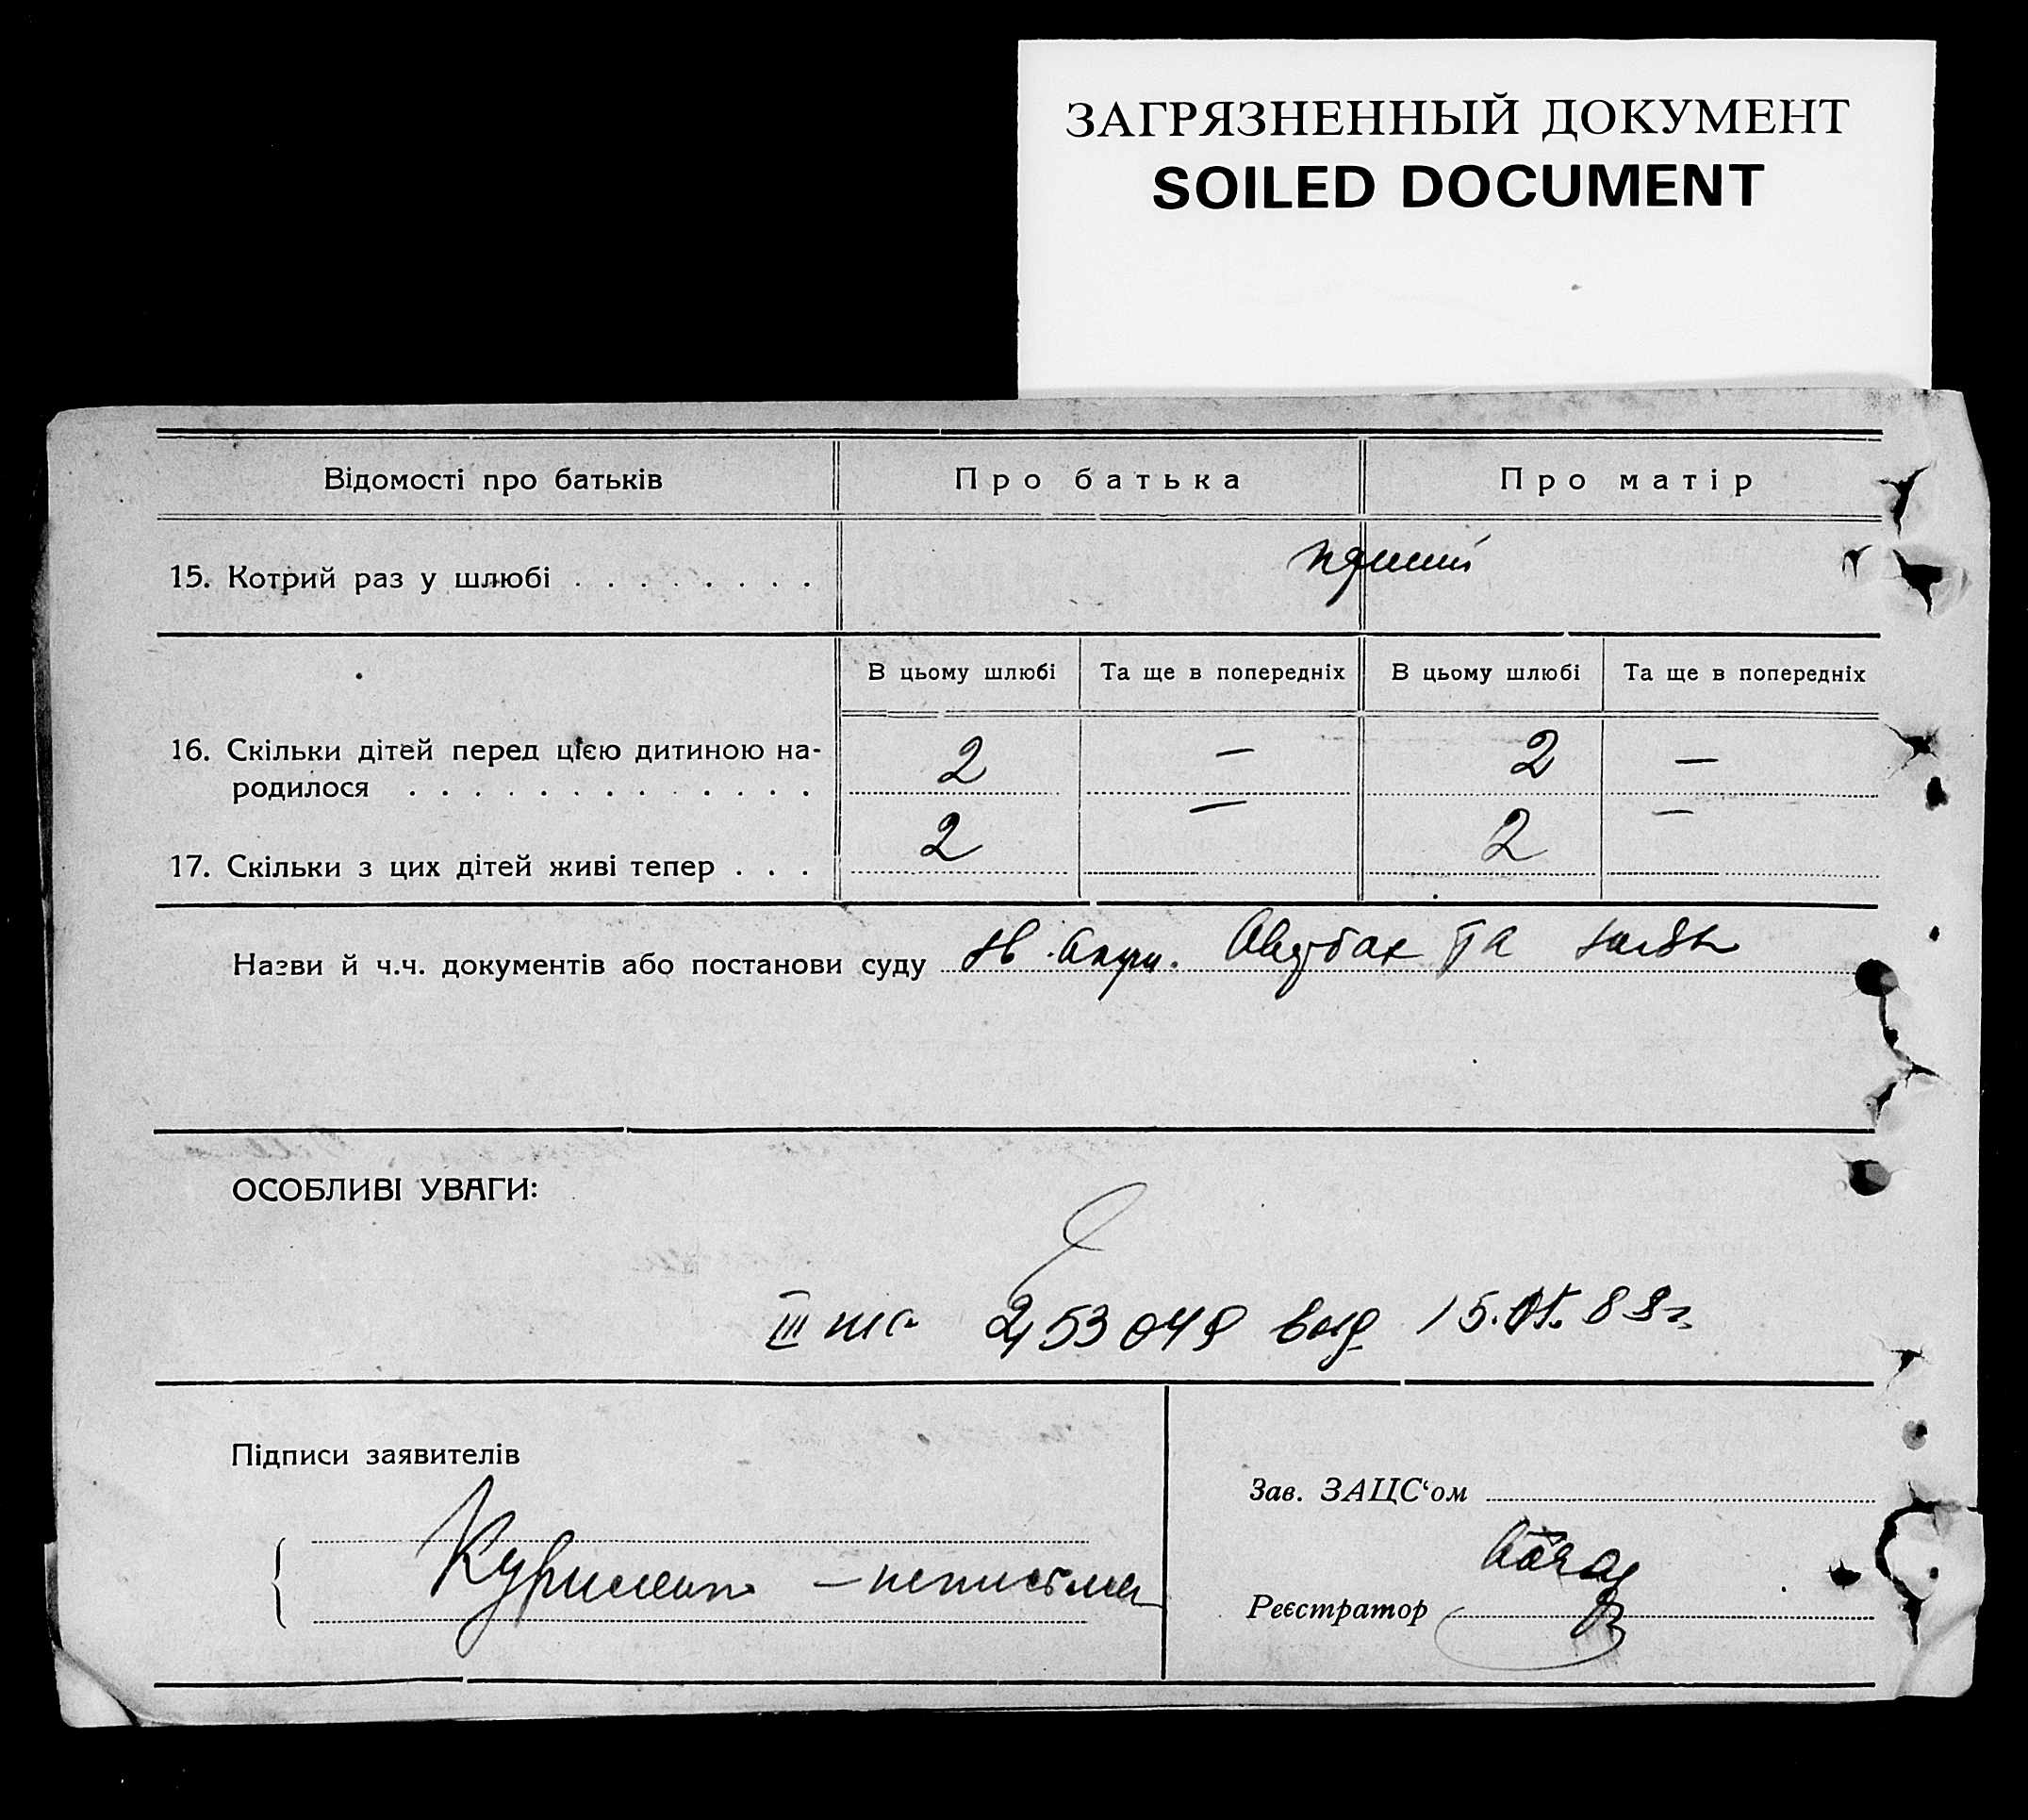 ЗАГРЯЗНЕННЫЙ ДОКУМЕНТ
SOILED DOCUMENT
Відомості про батьків Про батька Про матір
15. Котрий раз у шлюбі . . . . . . . .
В цьому шлюбі Та ще в попередніх В цьому шлюбі Та ще в попередніх
16. Скільки дітей перед цією дитиною на-
родилося . . . . . . . . . . . . . 2 — 2 —
17. Скільки з цих дітей живі тепер . . . 2 — 2 —
Назви й ч.ч. документів або постанови суду та
ОСОБЛИВІ УВАГИ:
III 253049 выд 15. 88г.
Підписи заявителів
Зав. ЗАЦС‘ом
Реєстратор